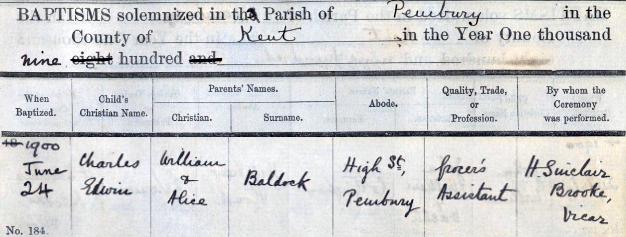 BAPTISMS solemnized in the Parish of Pembury in the
County of Kent in the Year One thousand
nine eight hundred and
When Baptized.
Child's Christian Name.
Parents' Names.
Christian.
Surname.
Abode.
Quality, Trade, or Profession.
By whom the Ceremony was performed.
18 1900
June
24
Charles
Edwin
William
&
Alice
Baldock
High St,
Pembury
Grocer's
Assistant
H. Sinclair
Brooke,
Vicar
No. 184.